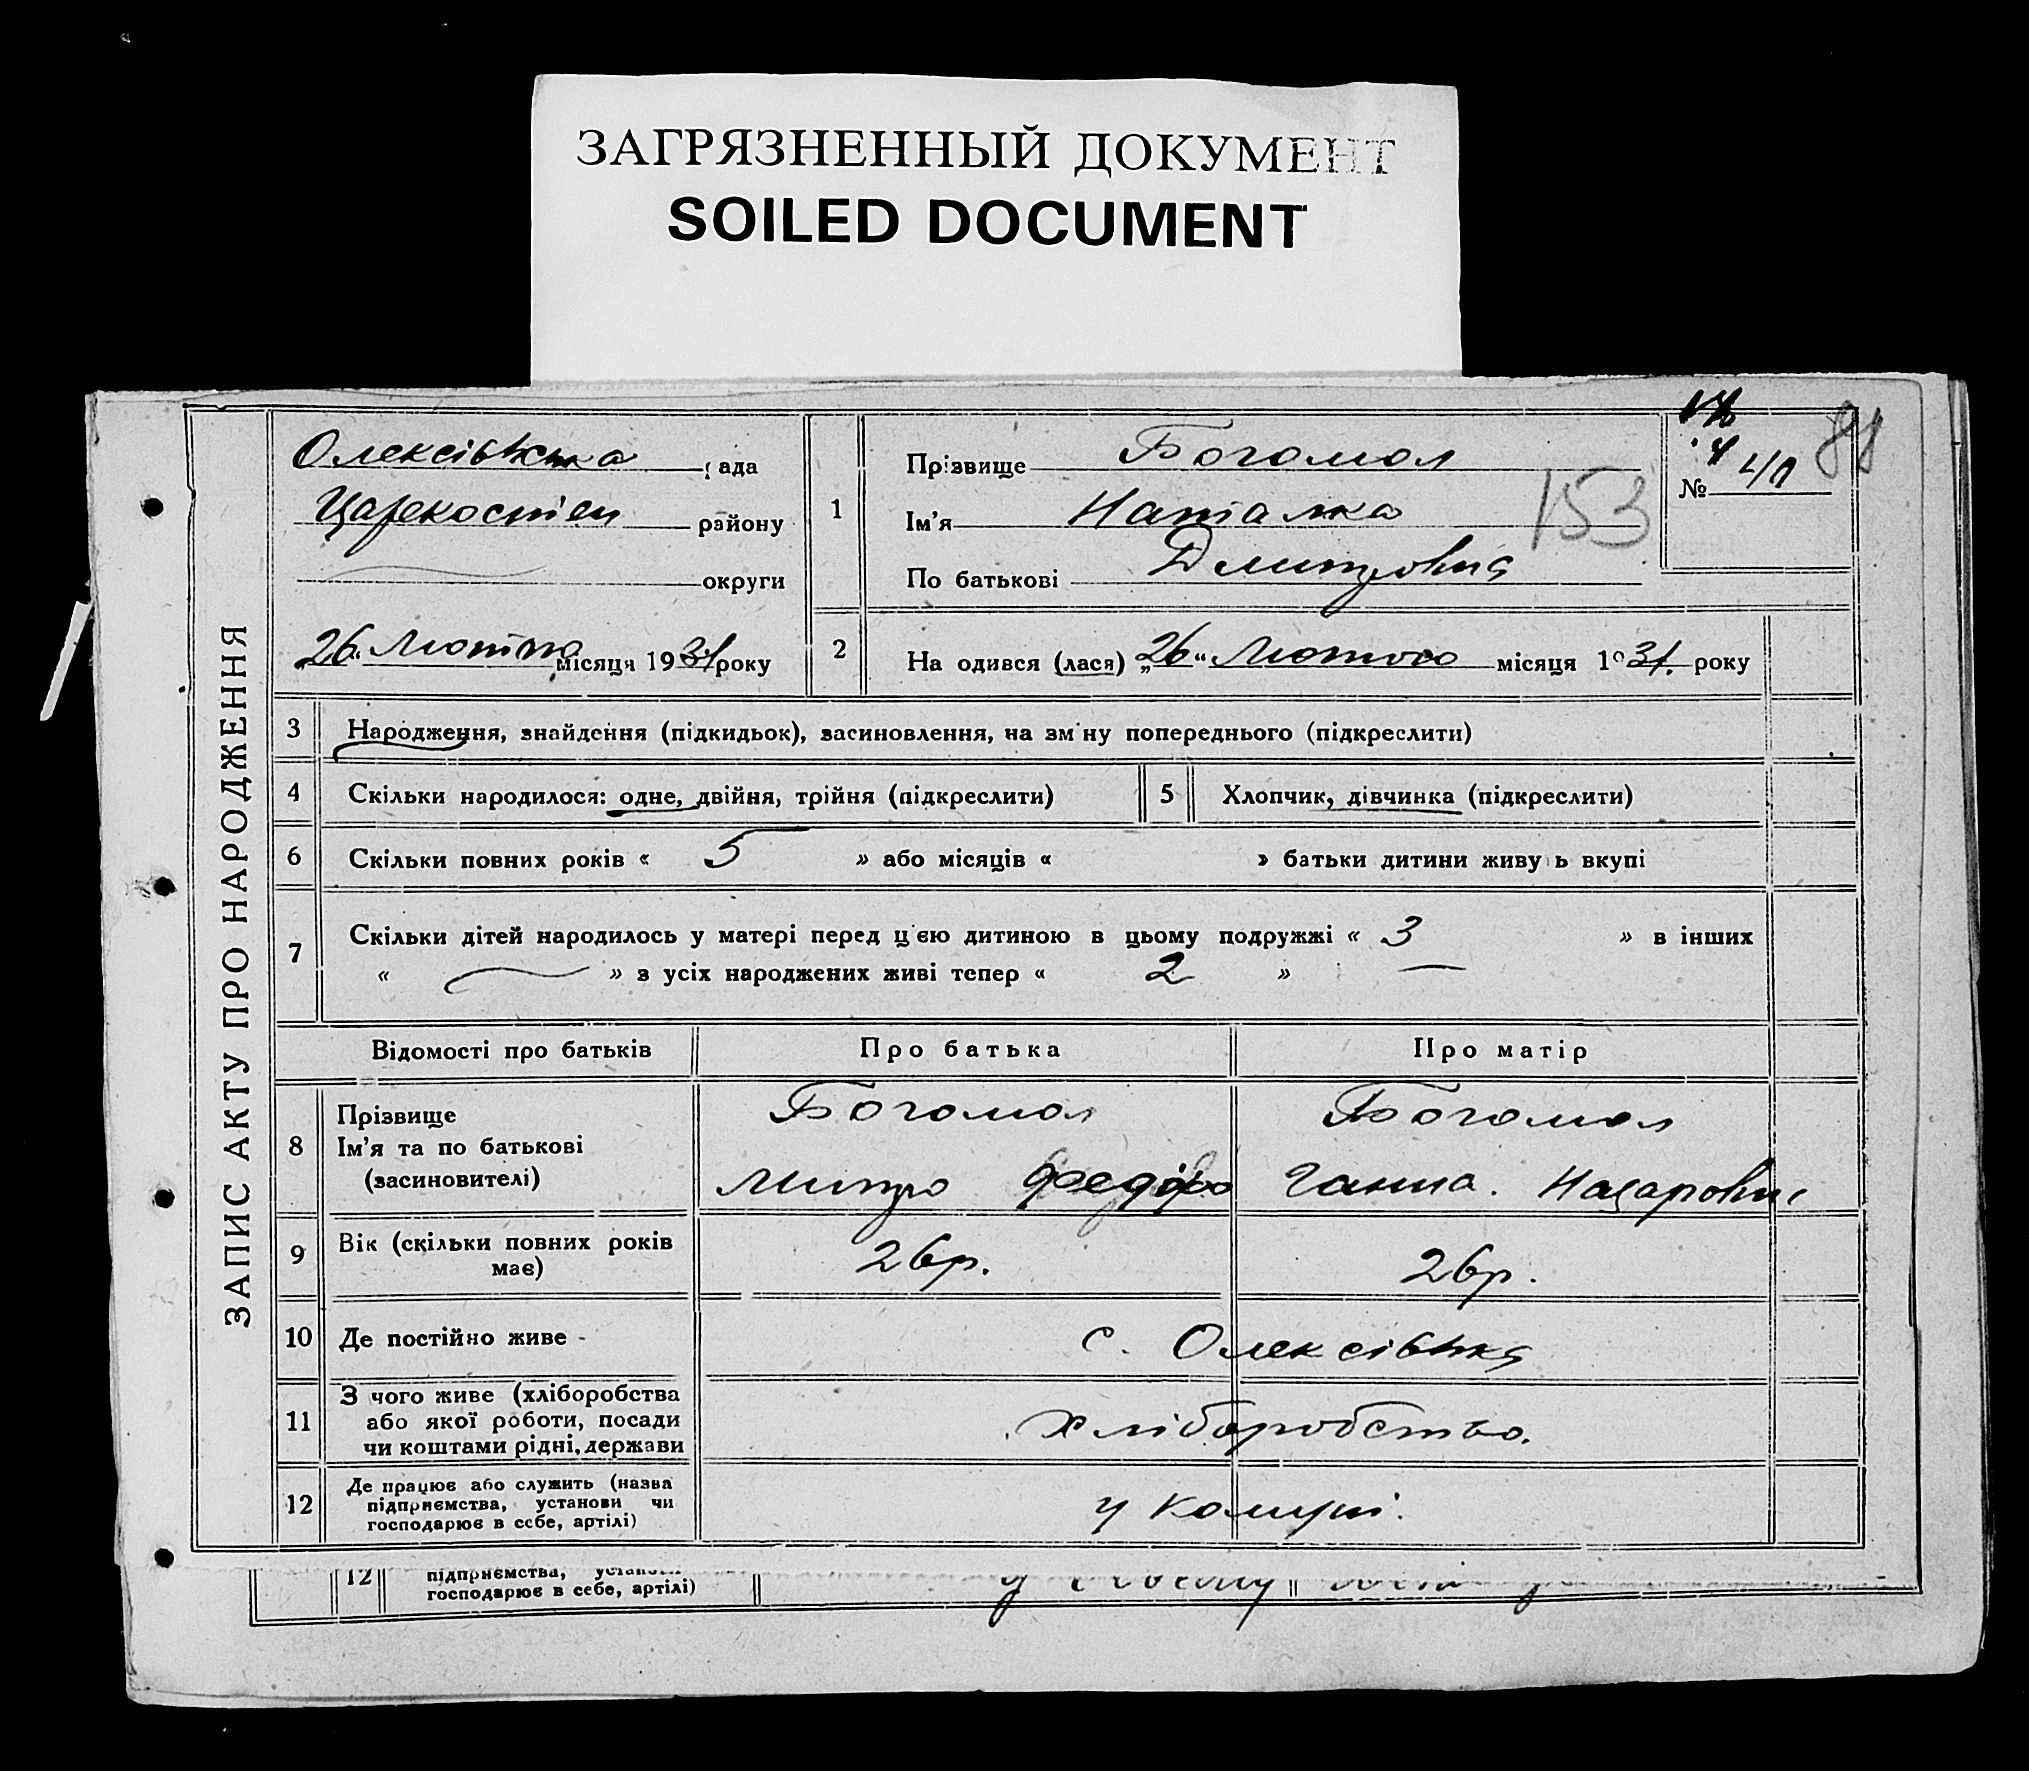 ЗАГРЯЗНЕННЫЙ ДОКУМЕНТ
SOILED DOCUMENT
ЗАПИС АКТУ ПРО НАРОДЖЕННЯ
Олексівська рада
району
округи
26 Лютого місяця 1931 року
1
Прізвище Богомол
Ім'я Наталка
По батькові Дмитровна
№ 40
153
2 На одився (лася) „26“ Лютого місяця 1931. року
3 Народження, знайдення (підкидьок), засиновлення, на зм ну попереднього (підкреслити)
4 Скільки народилося: одне, двійня, трійня (підкреслити)
5 Хлопчик, дівчинка (підкреслити)
6 Скільки повних років « 5 » або місяців « » батьки дитини живу ь вкупі
7 Скільки дітей народилось у матері перед ц'єю дитиною в цьому подружжі « 3 » в інших
« — » з усіх народжених живі тепер « 2 » —
Відомості про батьків Про батька Про матір
8 Прізвище Богомол Богомол
Ім'я та по батькові
(засиновителі) Митро Ганна.
9 Вік (скільки повних років 26р. 26р.
має)
10 Де постійно живе - с. Олексівка
11 З чого живе (хліборобства
або якої роботи, посади хліборобство.
чи коштами рідні, держави
12 Де працює або служить (назва
підприємства, установи чи у комуні.
господарює в себе, артілі)
12 підприємства,
господарює в себе, артілі)